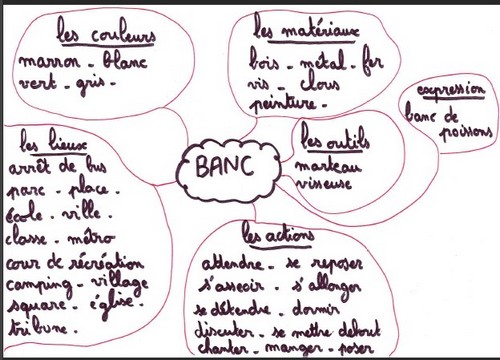 les couleurs
marron - blanc
vert - gris -
les matériaux
bois - métal - fer
vis - clous
peinture -
expression
banc de
poissons
les outils
marteau
visseuse
BANC
les lieux
arrêt de bus
parc - place -
école - ville -
classe - métro
cour de récréation
camping - village
square - église -
tribune -
les actions
attendre - se reposer
s'asseoir - s'allonger
se détendre - dormir
discuter - se mettre debout
chanter - manger - poser